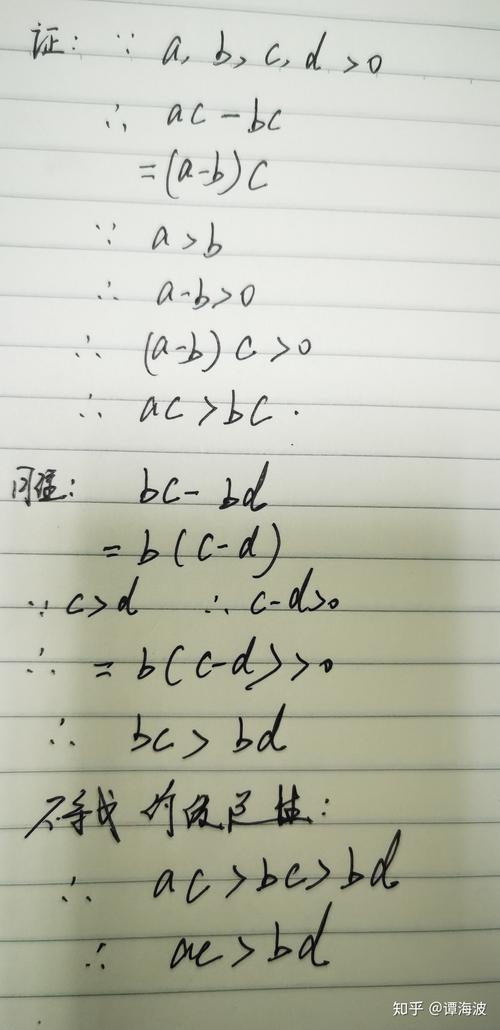 证: ∵ a, b, c, d >0
∴ ac - bc
= (a-b) c
∵ a>b
∴ a-b>0
∴ (a-b) c >0
∴ ac > bc .
同理: bc - bd
= b (c-d)
∵ c>d ∴ c-d>0
∴ = b(c-d) >0
∴ bc > bd
不等式 的 性:
∴ ac > bc > bd
∴ ac > bd
知乎 @谭海波